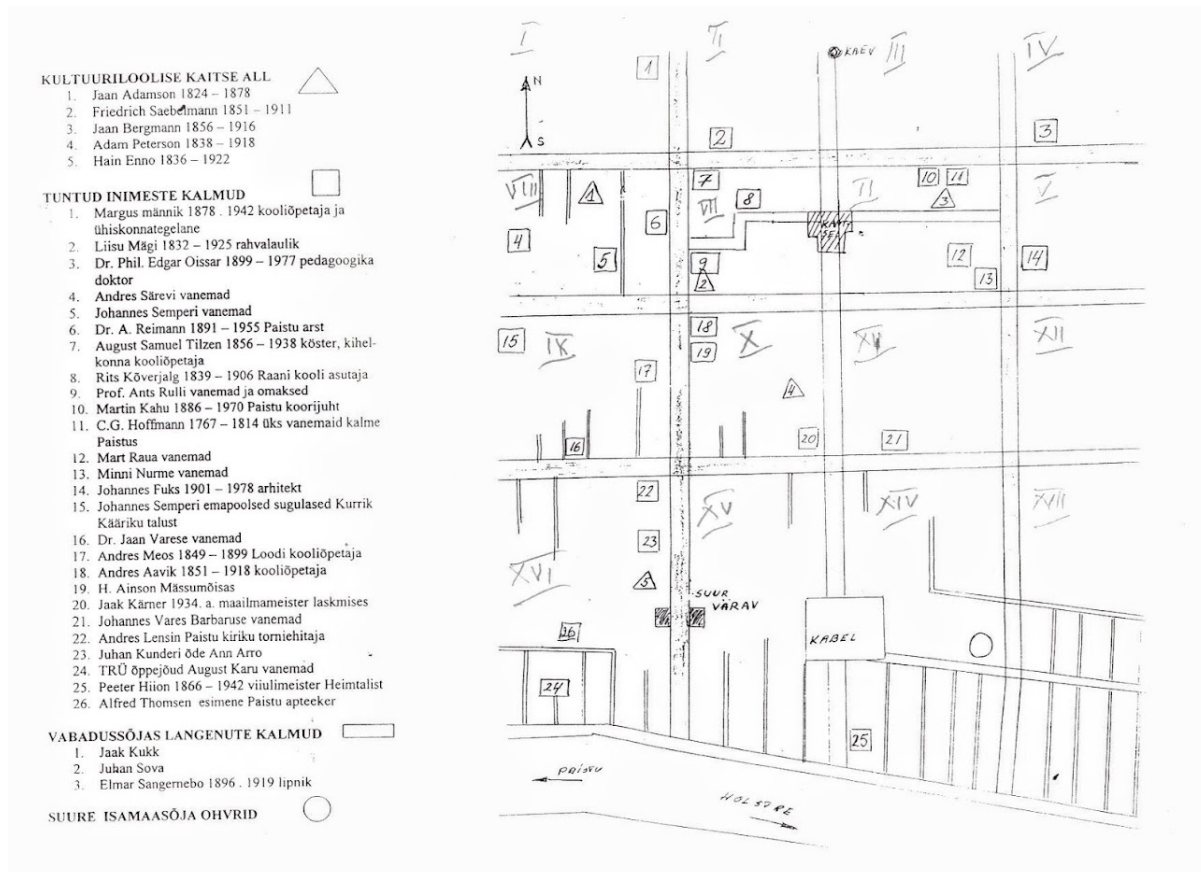 KULTUURILOOLISE KAITSE ALL
1. Jaan Adamson 1824 – 1878
2. Friedrich Saebelmann 1851 – 1911
3. Jaan Bergmann 1856 – 1916
4. Adam Peterson 1838 – 1918
5. Hain Enno 1836 – 1922
TUNTUD INIMESTE KALMUD
1. Margus männik 1878 . 1942 kooliõpetaja ja
ühiskonnategelane
2. Liisu Mägi 1832 – 1925 rahvalaulik
3. Dr. Phil. Edgar Oissar 1899 – 1977 pedagoogika
doktor
4. Andres Särevi vanemad
5. Johannes Semperi vanemad
6. Dr. A. Reimann 1891 – 1955 Paistu arst
7. August Samuel Tilzen 1856 – 1938 köster, kihel-
konna kooliõpetaja
8. Rits Kõverjalg 1839 – 1906 Raani kooli asutaja
9. Prof. Ants Rulli vanemad ja omaksed
10. Martin Kahu 1886 – 1970 Paistu koorijuht
11. C.G. Hoffmann 1767 – 1814 üks vanemaid kalme
Paistus
12. Mart Raua vanemad
13. Minni Nurme vanemad
14. Johannes Fuks 1901 – 1978 arhitekt
15. Johannes Semperi emapoolsed sugulased Kurrik
Kääriku talust
16. Dr. Jaan Varese vanemad
17. Andres Meos 1849 – 1899 Loodi kooliõpetaja
18. Andres Aavik 1851 – 1918 kooliõpetaja
19. H. Ainson Mässumõisas
20. Jaak Kärner 1934. a. maailmameister laskmises
21. Johannes Vares Barbaruse vanemad
22. Andres Lensin Paistu kiriku torniehitaja
23. Juhan Kunderi õde Ann Arro
24. TRÜ õppejõud August Karu vanemad
25. Peeter Hiion 1866 – 1942 viiulimeister Heimtalist
26. Alfred Thomsen esimene Paistu apteeker
VABADUSSÕJAS LANGENUTE KALMUD
1. Jaak Kukk
2. Juhan Sova
3. Elmar Sangernebo 1896 . 1919 lipnik
SUURE ISAMAASÕJA OHVRID
I
III
IV
KAEV
1
N
S
2
3
VIII
1
7
8
II
10
11
3
V
VII
4
5
6
9
2
12
13
14
15
IX
18
19
X
XII
17
4
16
20
21
22
XV
XIV
23
XVI
5
SUUR
VÄRAV
KABEL
24
25
PAISTU
HOLSTRE